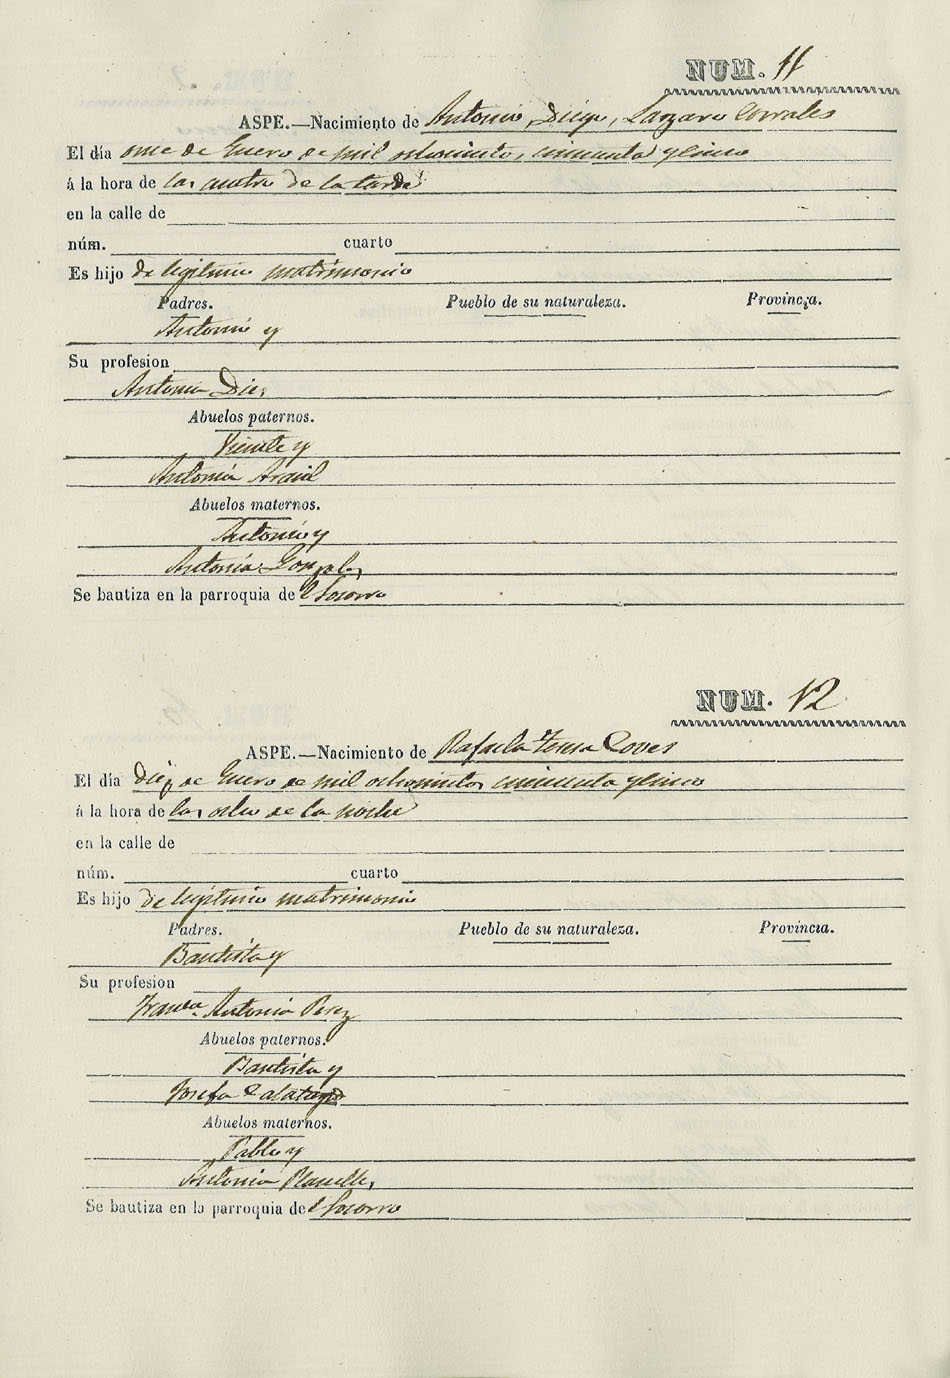 NUM. 11
ASPE.—Nacimiento de Antonio, Diego, Lazaro Corrales
El día once de Enero de mil ochocientos, cincuenta y cinco
á la hora de las cuatro de la tarde
en la calle de
núm. cuarto
Es hijo de legitimo matrimonio
Padres. Pueblo de su naturaleza. Provincia.
Antonio y
Su profesion
Antonia Diez
Abuelos paternos.
Vicente y
Antonia Aracil
Abuelos maternos.
Antonio y
Antonia Gonzalez
Se bautiza en la parroquia del Socorro
NUM. 12
ASPE.—Nacimiento de Rafaela Teresa Cover
El día diez de Enero de mil ochocientos cincuenta y cinco
á la hora de las ocho de la noche
en la calle de
núm. cuarto
Es hijo de legitimo matrimonio
Padres. Pueblo de su naturaleza. Provincia.
Bautista y
Su profesion
Franca. Antonia Perez
Abuelos paternos.
Bautista y
Josefa Calatayud
Abuelos maternos.
Pablo y
Antonia Planelles
Se bautiza en la parroquia del Socorro